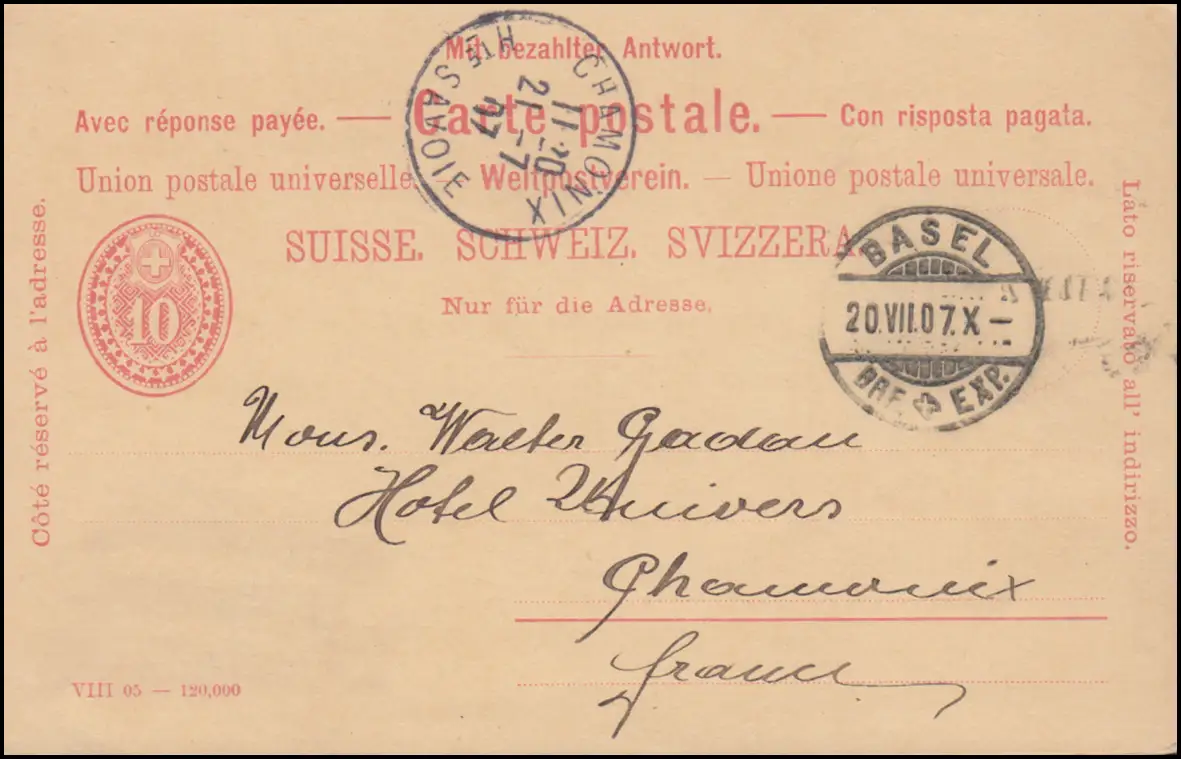 Mit bezahlter Antwort.
Avec réponse payée. — Carte postale. — Con risposta pagata.
Union postale universelle. — Weltpostverein. — Unione postale universale.
SUISSE. SCHWEIZ. SVIZZERA.
Nur für die Adresse.
Côté réservé à l'adresse.
Lato riservato all' indirizzo.
10
CHAMONIX
HTE SAVOIE
11·20
21-7
07
BASEL
20.VII.07.X-
BRF. EXP.
Mons. Walter Gadau
Hotel Univers
Chamonix
france
VIII 05 — 120,000